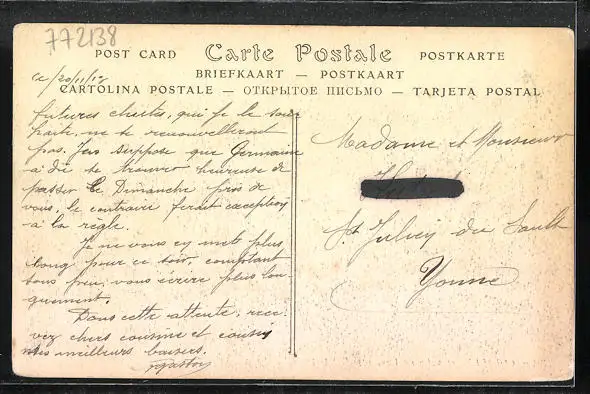 772138
POST CARD Carte Postale POSTKARTE
BRIEFKAART — POSTKAART
CARTOLINA POSTALE — ОТКРЫТОЕ ПИСЬМО — TARJETA POSTAL
ce 20/11/1
futures chutes, qui je le sou-
haite, ne se renouvelleront
pas. Je suppose que Germaine
a dû se trouver heureuse de
passer le Dimanche près de
vous, le contraire ferait exception
à la règle.
Je ne vous en mets plus
long pour ce soir, comptant
sous peu, vous écrire plus lon-
guement.
Dans cette attente, rece-
vez chers cousine et cousin
mes meilleurs baisers.
Gaston
Madame et Monsieur
St Julien du Sault
Yonne